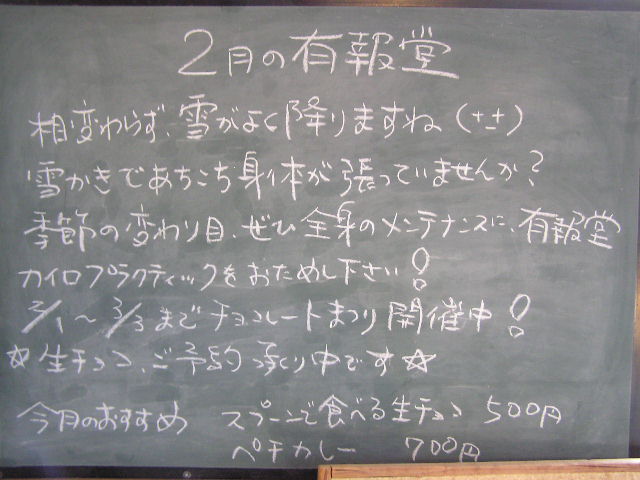 2月の有報堂
相変わらず、雪がよく降りますね(+_+)
雪かきであちこち身体が張っていませんか?
季節の変わり目、ぜひ全身のメンテナンスに、有報堂
カイロプラクティックをおためし下さい!
2/1~3/3までチョコレートまつり開催中!
☆生チョコ、ご予約承り中です☆
今月のおすすめ スプーンで食べる生チョコ 500円
ペチカレー 700円